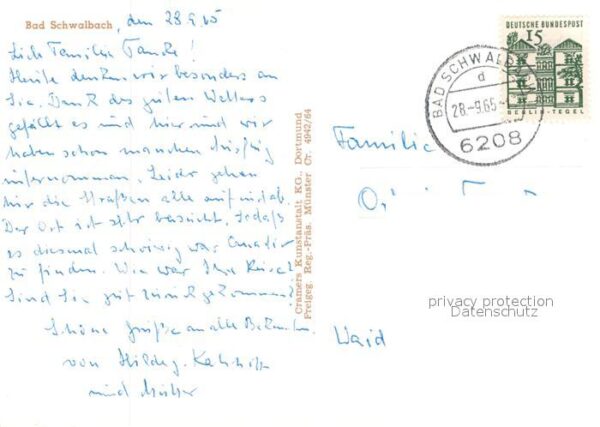 Bad Schwalbach, den 28.9.65
Lieb Familie
Heute denken wir besonders an
Sie. Dank des guten Wetters
gefällt es uns hier und wir
haben schon manchen Ausflug
unternommen. Leider gehen
hier die Straßen alle auf und ab.
Der Ort ist sehr besucht, sodaß
es diesmal schwierig war Quartier
zu finden. Wie war Ihre Reise?
Sind Sie gut zurückgekommen?
Schöne Grüße an alle Bekannten.
von Hildeg.
und Mutter
Cramers Kunstanstalt KG., Dortmund
Freigeg. Reg.-Präs. Münster Cr. 4942/64
DEUTSCHE BUNDESPOST
15
BERLIN-TEGEL
BAD SCHWALB
d
28.-9.65-
6208
Familie
privacy protection
Datenschutz
Waid